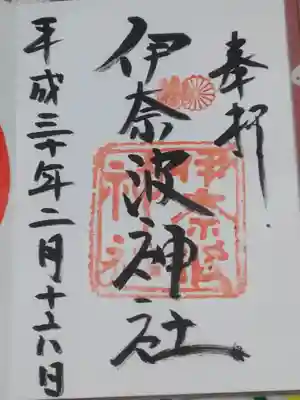 奉拝
伊奈波神社
伊奈波神社
平成三十年二月十六日